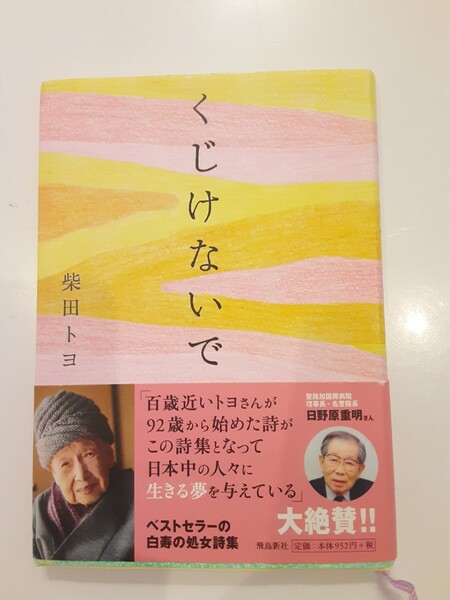 くじけないで
柴田トヨ
「百歳近いトヨさんが
92歳から始めた詩が
この詩集となって
日本中の人々に
生きる夢を与えている」
聖路加国際病院
理事長・名誉院長
日野原重明さん
大絶賛!!
ベストセラーの
白寿の処女詩集
飛鳥新社 定価：本体952円+税